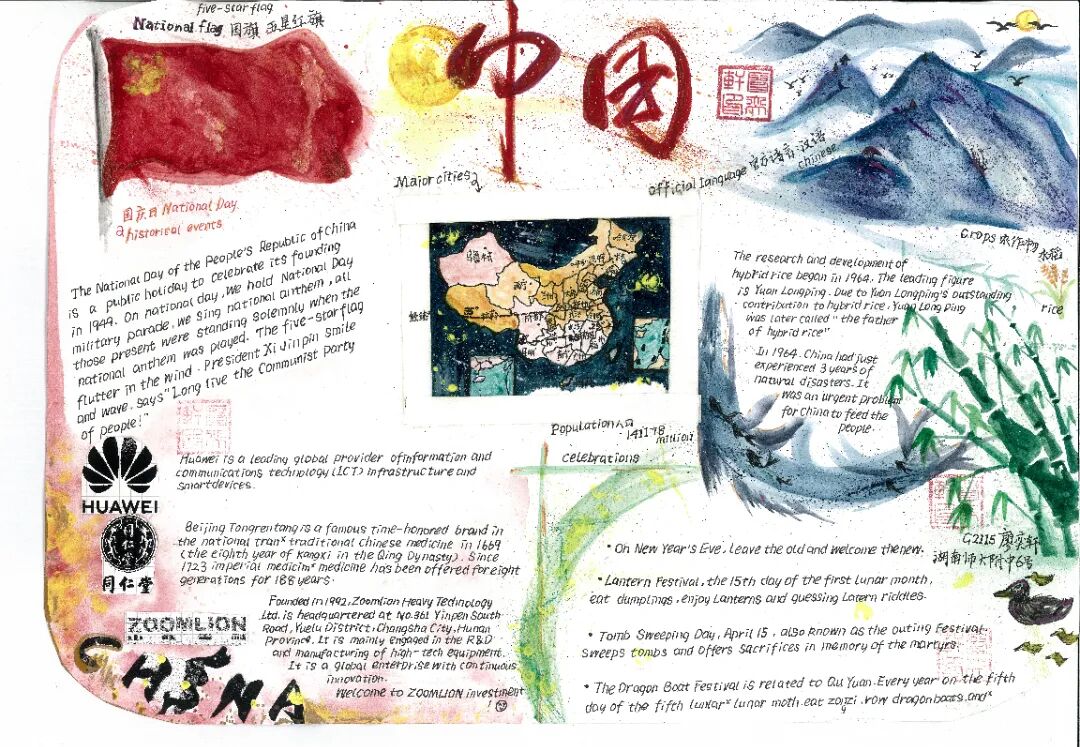 five-star flag
National flag 国旗 五星红旗
中国
Major cities
official language 官方语言·汉语
chinese
国庆日 National Day
historical events
The National Day of the People's Republic of China
is a public holiday to celebrate its founding
in 1949. On national day, we hold National Day
military parade. we sing national anthem, all
those present were standing solemnly when the
national anthem was played. The five-star flag
flutter in the wind. President Xi Jinpin smile
and wave, says "Long live the Communist Party
of people!"
新疆
西藏
Crops 农作物 水稻
rice
The research and development of
hybrid rice began in 1964. The leading figure
is Yuan Longping. Due to Yuan Longping's outstanding
contribution to hybrid rice, Yuan Long ping
was later called "the father
of hybrid rice"
In 1964. China had just
experienced 3 years of
natural disasters. It
was an urgent problem
for China to feed the
people.
Population 人口
141178
million
celebrations
HUAWEI
Huawei is a leading global provider of information and
communications technology (ICT) infrastructure and
smart devices.
同仁堂
同仁堂
Beijing Tongrentang is a famous time-honored brand in
the national tran* traditional Chinese medicine in 1669
(the eighth year of kangxi in the Qing Dynasty). Since
1723 imperial medicim* medicine has been offered for eight
generations for 188 years.
ZOOMLION
Founded in 1992, Zoomlion Heavy Technology
Ltd. is headquartered at No.361 Yinpen South
Road, Yuelu District, Changsha City, Hunan
Province. It is mainly engaged in the R&D
and manufacturing of high-tech equipment.
It is a global enterprise with continuous
innovation.
Welcome to ZOOMLION investment
!
CHINA
G2115 廖奕轩
湖南师大附中6号
• On New Year's Eve, leave the old and welcome the new.
• Lantern Festival, the 15th day of the first lunar month,
eat dumplings, enjoy Lanterns and guessing Latern riddles.
• Tomb Sweeping Day, April 15, also known as the outing Festival.
Sweeps tombs and offers sacrifices in memory of the martyrs.
• The Dragon Boat Festival is related to Qu Yuan. Every year on the fifth
day of the fifth lunar* lunar moth. eat zongzi, row dragon boats, and*